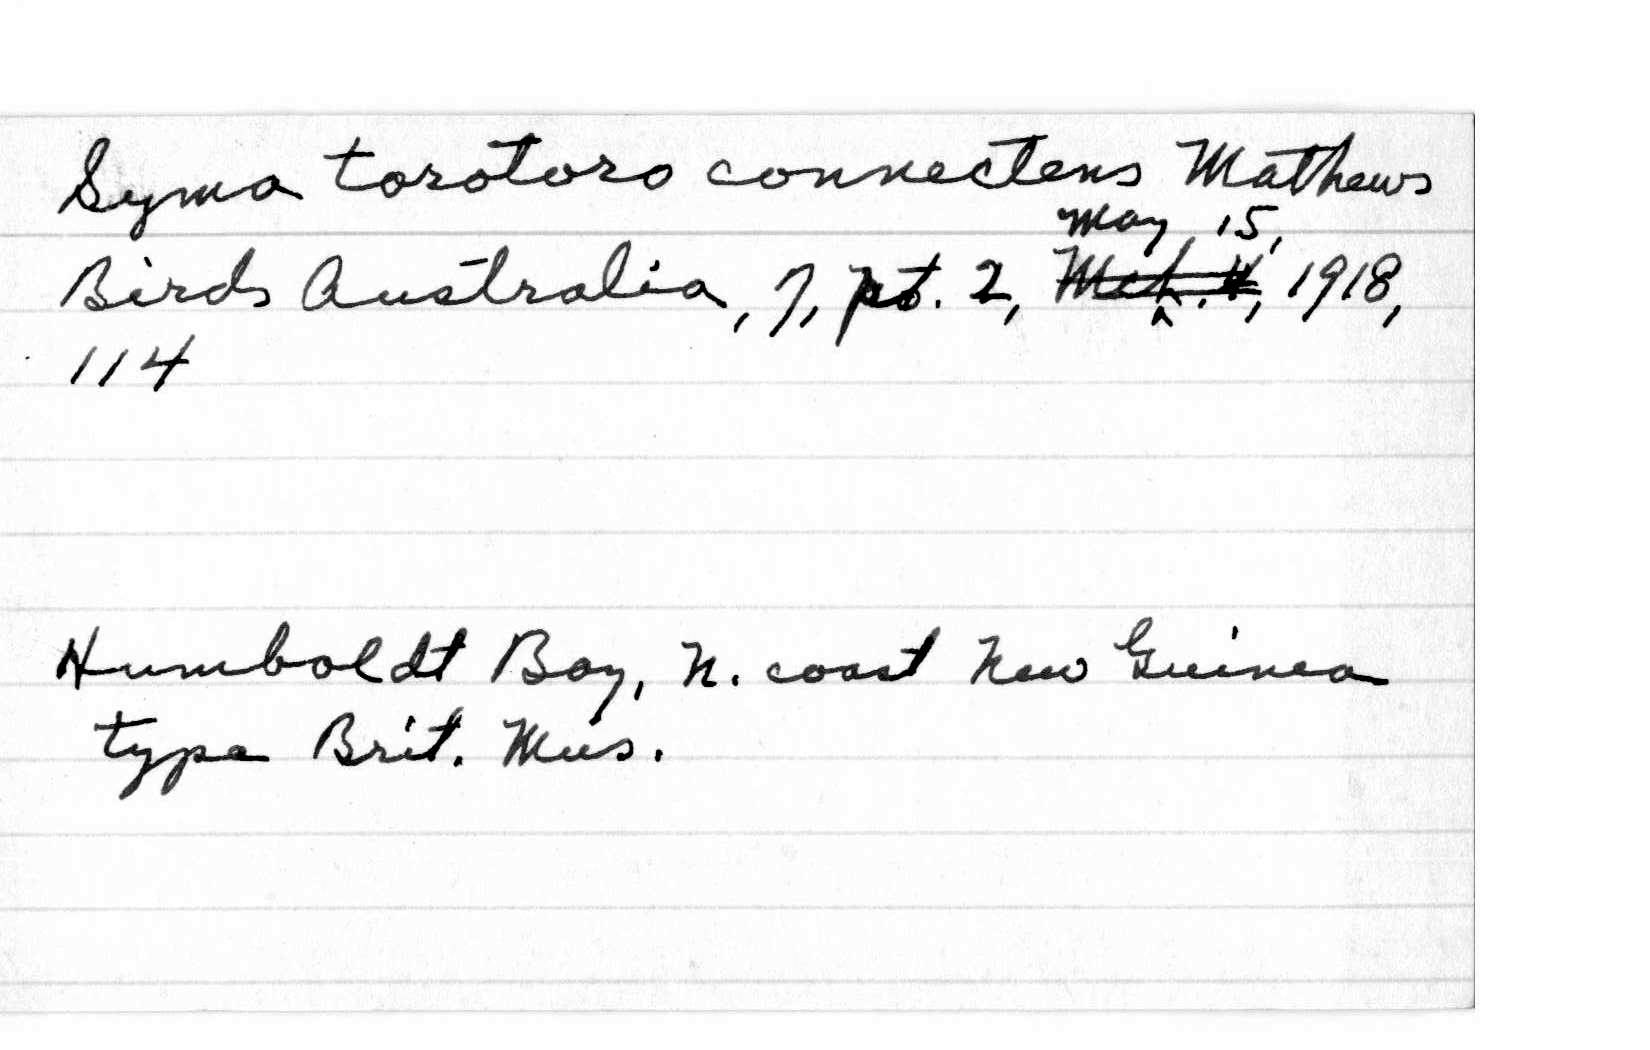 Syma torotoro connectens Mathews
May 15,
Birds Australia, 7, pt. 2, 1918,
114
Humboldt Bay, N. coast New Guinea
type Brit. Mus.